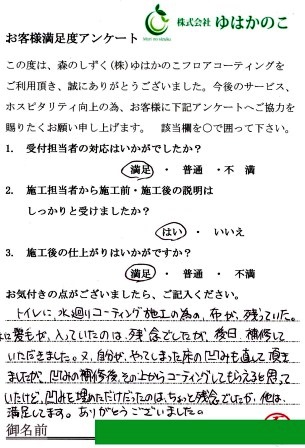 株式会社 ゆはかのこ
Mori no shizuku
お客様満足度アンケート
この度は、森のしずく(株)ゆはかのこフロアコーティングを
ご利用頂き、誠にありがとうございました。今後のサービス、
ホスピタリティ向上の為、お客様に下記アンケートへご協力を
賜りたくお願い申し上げます。 該当欄を○で囲って下さい。
1. 受付担当者の対応はいかがでしたか?
満足 ・ 普通 ・ 不満
2. 施工担当者から施工前・施工後の説明は
しっかりと受けましたか?
はい ・ いいえ
3. 施工後の仕上がりはいかがですか?
満足 ・ 普通 ・ 不満
お気付きの点がございましたら、ご記入ください。
トイレに、水廻りコーティング施工の為の、布が、残っていた。
に髪毛が、入っていたのは、残念でしたが、後日、補修して
いただきました。又、自分が、やってしまった床の凹みも直して頂き
ましたが、凹みの補修後、その上からコーティングしてもらえると思って
いたけど、凹みを埋めただけだったのは、ちょっと残念でしたが、他は、
満足してます。ありがとうございました。
御名前